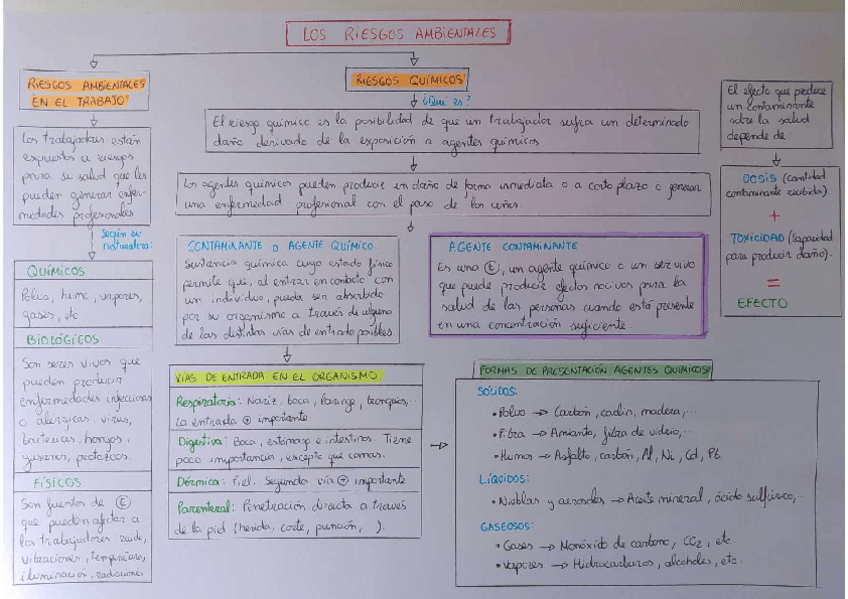 LOS RIESGOS AMBIENTALES
RIESGOS AMBIENTALES
EN EL TRABAJO
Los trabajadores están
expuestos a riesgos
para su salud que les
pueden generar enfer-
medades profesionales
según su
naturaleza:
QUÍMICOS
Polvo, humo, vapores,
gases, etc
BIOLÓGICOS
Son seres vivos que
pueden producir
enfermedades infecciosas
o alérgicas: virus,
bacterias, hongos,
gusanos, protozoos.
FÍSICOS
Son fuentes de Ⓔ
que pueden afectar a
los trabajadores: ruido,
vibraciones, temperatura,
iluminación, radiaciones
RIESGOS QUÍMICOS
¿Qué es?
El riesgo químico es la posibilidad de que un trabajador sufra un determinado
daño derivado de la exposición a agentes químicos
Los agentes químicos pueden producir un daño de forma inmediata o a corto plazo o generar
una enfermedad profesional con el paso de los años.
CONTAMINANTE O AGENTE QUÍMICO
Sustancia química cuyo estado físico
permite que, al entrar en contacto con
un individuo, pueda ser absorbido
por su organismo a través de alguna
de las distintas vías de entrada posibles
AGENTE CONTAMINANTE
Es una Ⓔ, un agente químico o un ser vivo
que puede producir efectos nocivos para la
salud de las personas cuando está presente
en una concentración suficiente.
VÍAS DE ENTRADA EN EL ORGANISMO
Respiratoria: Nariz, boca, laringe, bronquios,...
La entrada ⊕ importante
Digestiva: Boca, estómago e intestinos. Tiene
poca importancia, excepto que comas.
Dérmica: Piel. Segunda vía ⊕ importante
Parenteral: Penetración directa a través
de la piel (herida, corte, punción, ).
FORMAS DE PRESENTACIÓN AGENTES QUÍMICOS
SÓLIDOS:
• Polvo → Carbón, caolín, madera,...
• Fibra → Amianto, fibra de vidrio,...
• Humos → Asfalto, carbón, Al, Ni, Cd, Pb.
LÍQUIDOS:
• Nieblas y aerosoles → Aceite mineral, ácido sulfúrico,...
GASEOSOS:
• Gases → Monóxido de carbono, CO2, etc
• Vapores → Hidrocarburos, alcoholes, etc.
El efecto que produce
un contaminante
sobre la salud
depende de:
DOSIS (cantidad
contaminante recibida)
+
TOXICIDAD (capacidad
para producir daño).
=
EFECTO